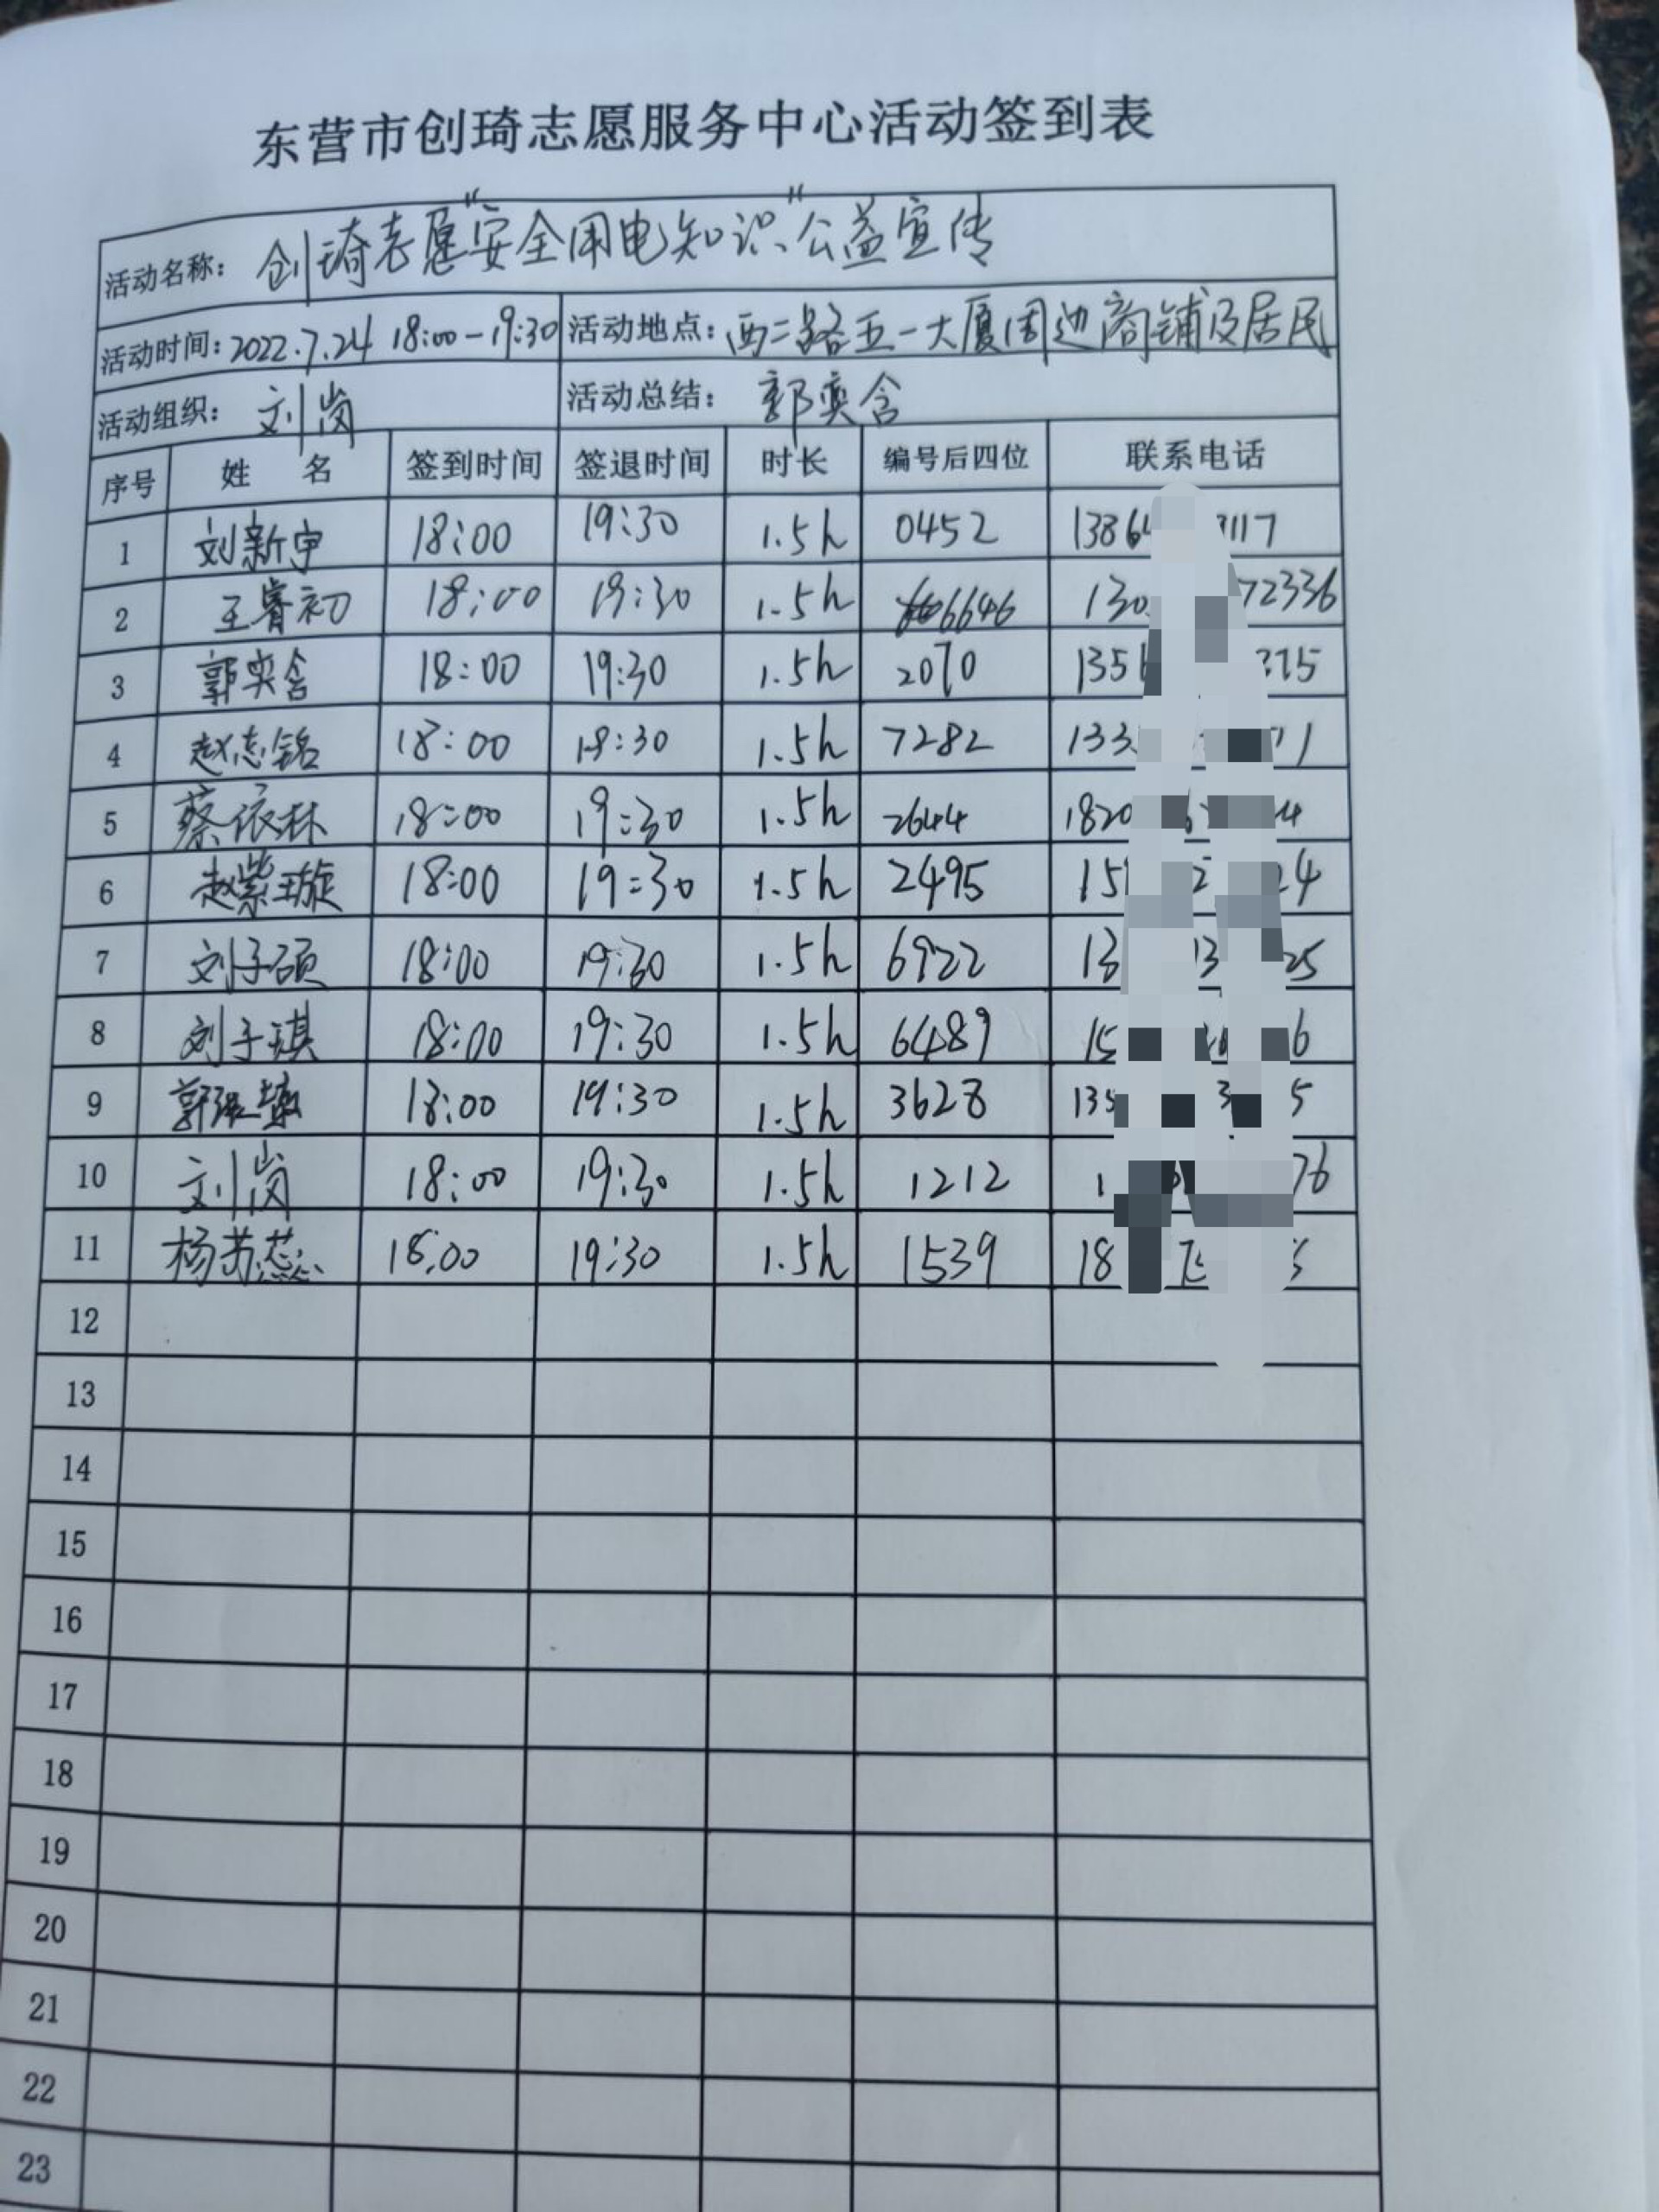 东营市创琦志愿服务中心活动签到表
活动名称：创琦志愿"安全用电知识"公益宣传
活动时间：2022.7.24 18:00-19:30 活动地点：西二路五一大厦周边商铺及居民
活动组织：刘岗 活动总结：郭奕含
序号 姓 名 签到时间 签退时间 时长 编号后四位 联系电话
1 刘新宇 18:00 19:30 1.5h 0452
2 王睿初 18:00 19:30 1.5h 6646
3 郭奕含 18:00 19:30 1.5h 2070
4 赵志铭 18:00 19:30 1.5h 7282
5 蔡依林 18:00 19:30 1.5h 2644
6 赵紫璇 18:00 19:30 1.5h 2495
7 刘子硕 18:00 19:30 1.5h 6922
8 刘子琪 18:00 19:30 1.5h 6489
9 18:00 19:30 1.5h 3628
10 刘岗 18:00 19:30 1.5h 1212
11 杨芳蕊 18:00 19:30 1.5h 1539
12
13
14
15
16
17
18
19
20
21
22
23